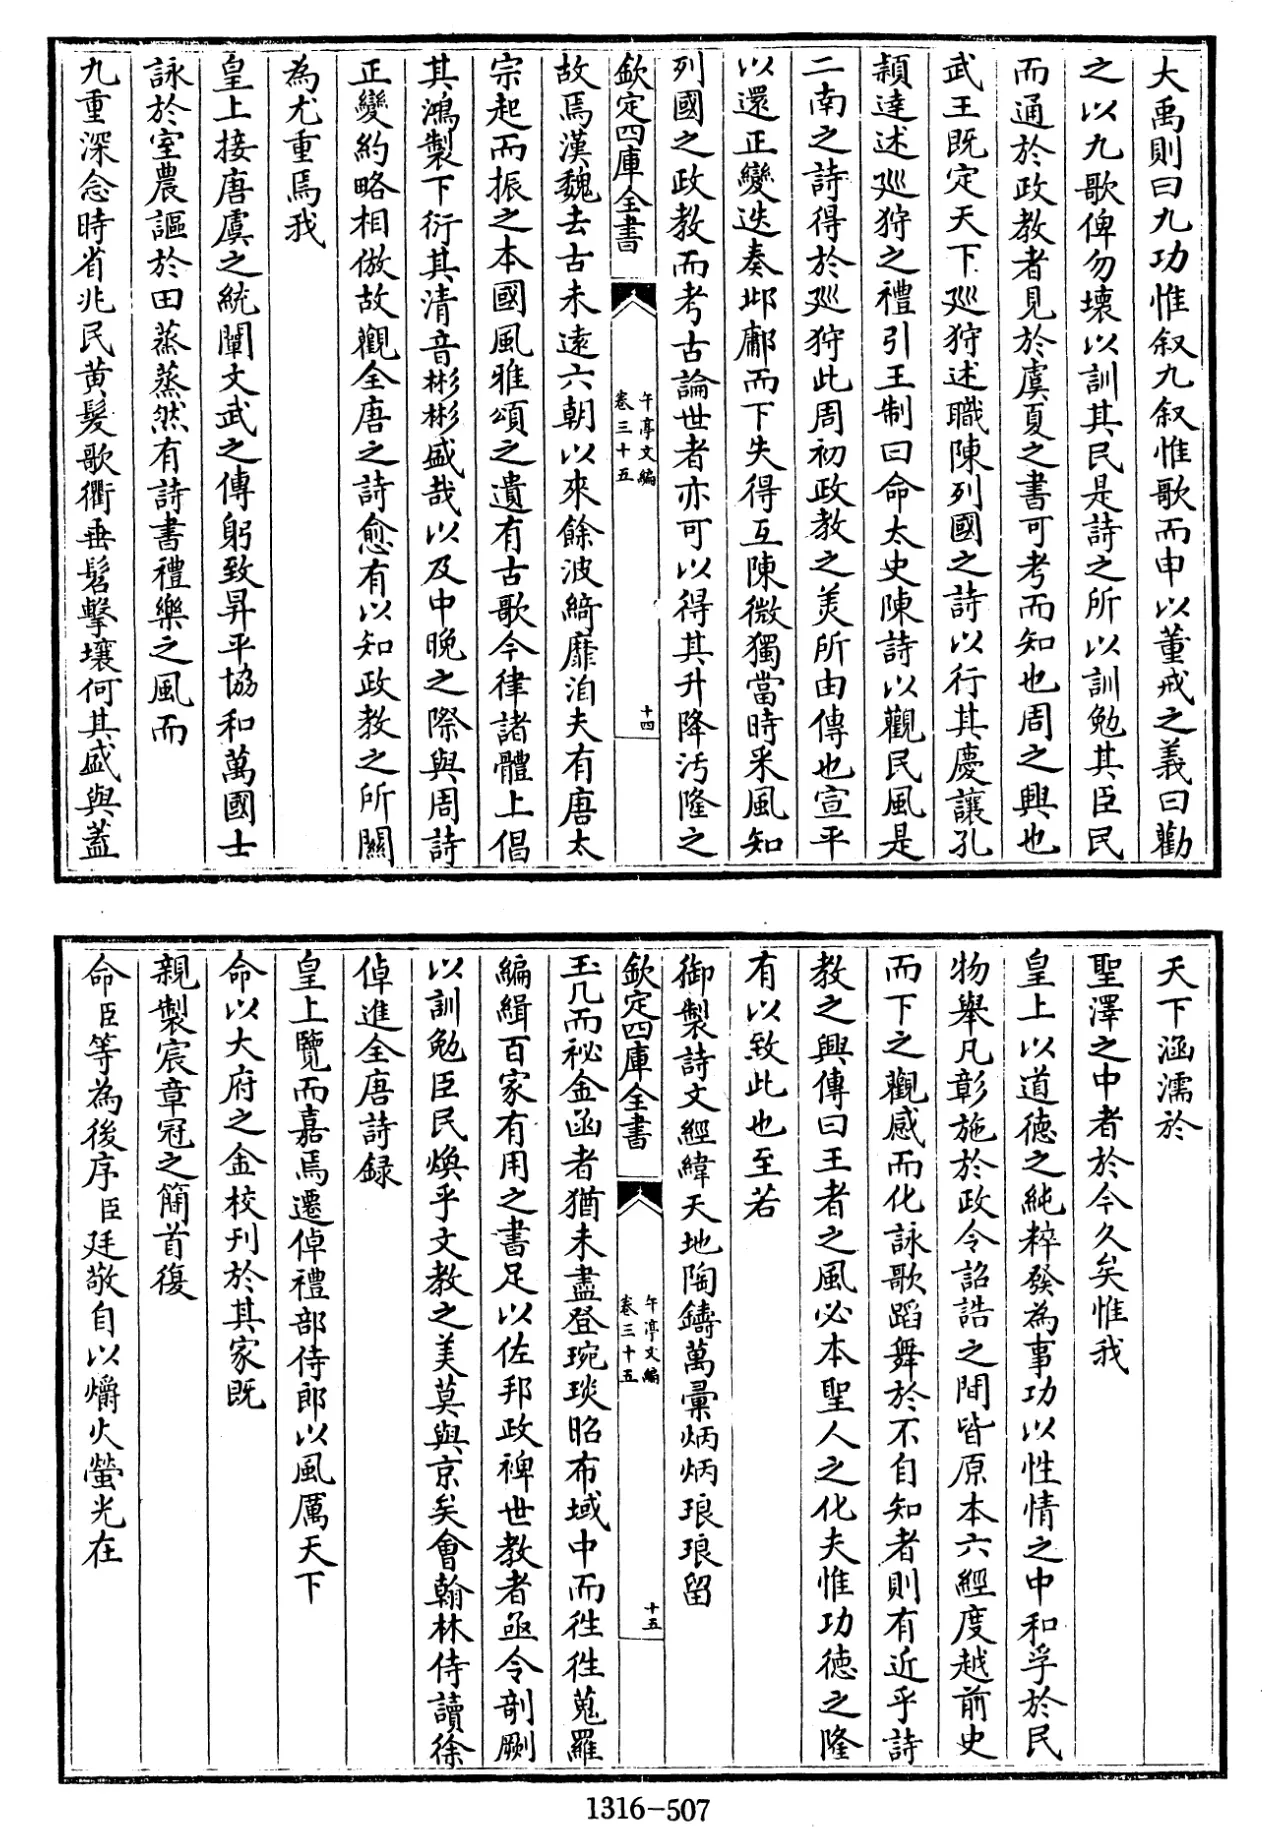 大禹則曰九功惟叙九叙惟歌而申以董戒之義曰勸
之以九歌俾勿壞以訓其民是詩之所以訓勉其臣民
而通於政教者見於虞夏之書可考而知也周之興也
武王既定天下巡狩述職陳列國之詩以行其慶讓孔
頴達述巡狩之禮引王制曰命太史陳詩以觀民風是
二南之詩得於巡狩此周初政教之美所由傳也宣平
以還正變迭奏邶鄘而下失得互陳微獨當時采風知
列國之政教而考古論世者亦可以得其升降汚隆之
欽定四庫全書
午亭文編
卷三十五
十四
故焉漢魏去古未遠六朝以來餘波綺靡洎夫有唐太
宗起而振之本國風雅頌之遺有古歌今律諸體上倡
其鴻製下衍其清音彬彬盛哉以及中晚之際與周詩
正變約略相倣故觀全唐之詩愈有以知政教之所關
為尤重焉我
皇上接唐虞之統闡文武之傳躬致昇平協和萬國士
詠於室農謳於田蒸蒸然有詩書禮樂之風而
九重深念時省兆民黄髮歌衢垂髫擊壤何其盛與蓋
天下涵濡於
聖澤之中者於今久矣惟我
皇上以道德之純粹發為事功以性情之中和孚於民
物舉凡彰施於政令詔誥之間皆原本六經度越前史
而下之觀感而化詠歌蹈舞於不自知者則有近乎詩
教之興傳曰王者之風必本聖人之化夫惟功德之隆
有以致此也至若
御製詩文經緯天地陶鑄萬彚炳炳琅琅留
欽定四庫全書
午亭文編
卷三十五
十五
玉几而秘金函者猶未盡登琬琰昭布域中而徃徃蒐羅
編緝百家有用之書足以佐邦政禆世教者亟令剞劂
以訓勉臣民煥乎文教之美莫與京矣會翰林侍讀徐
倬進全唐詩録
皇上覽而嘉焉遷倬禮部侍郎以風厲天下
命以大府之金校刋於其家既
親製宸章冠之簡首復
命臣等為後序臣廷敬自以爝火螢光在
1316-507